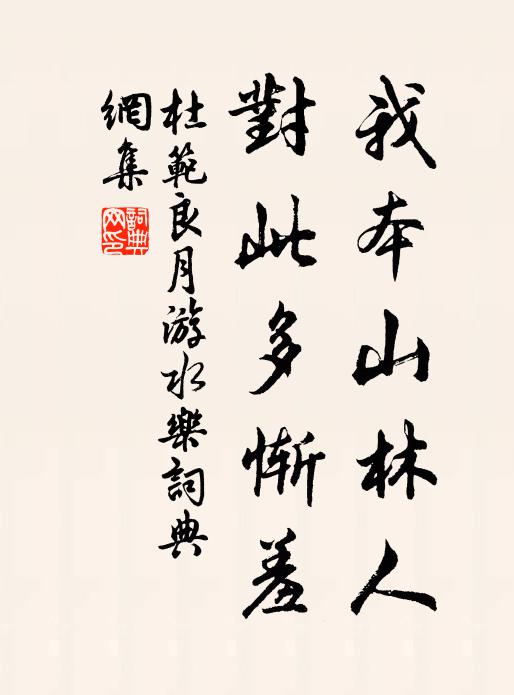 我本山林人
對此多慚羞
杜範良月游水樂詞典
網集
詞典网印